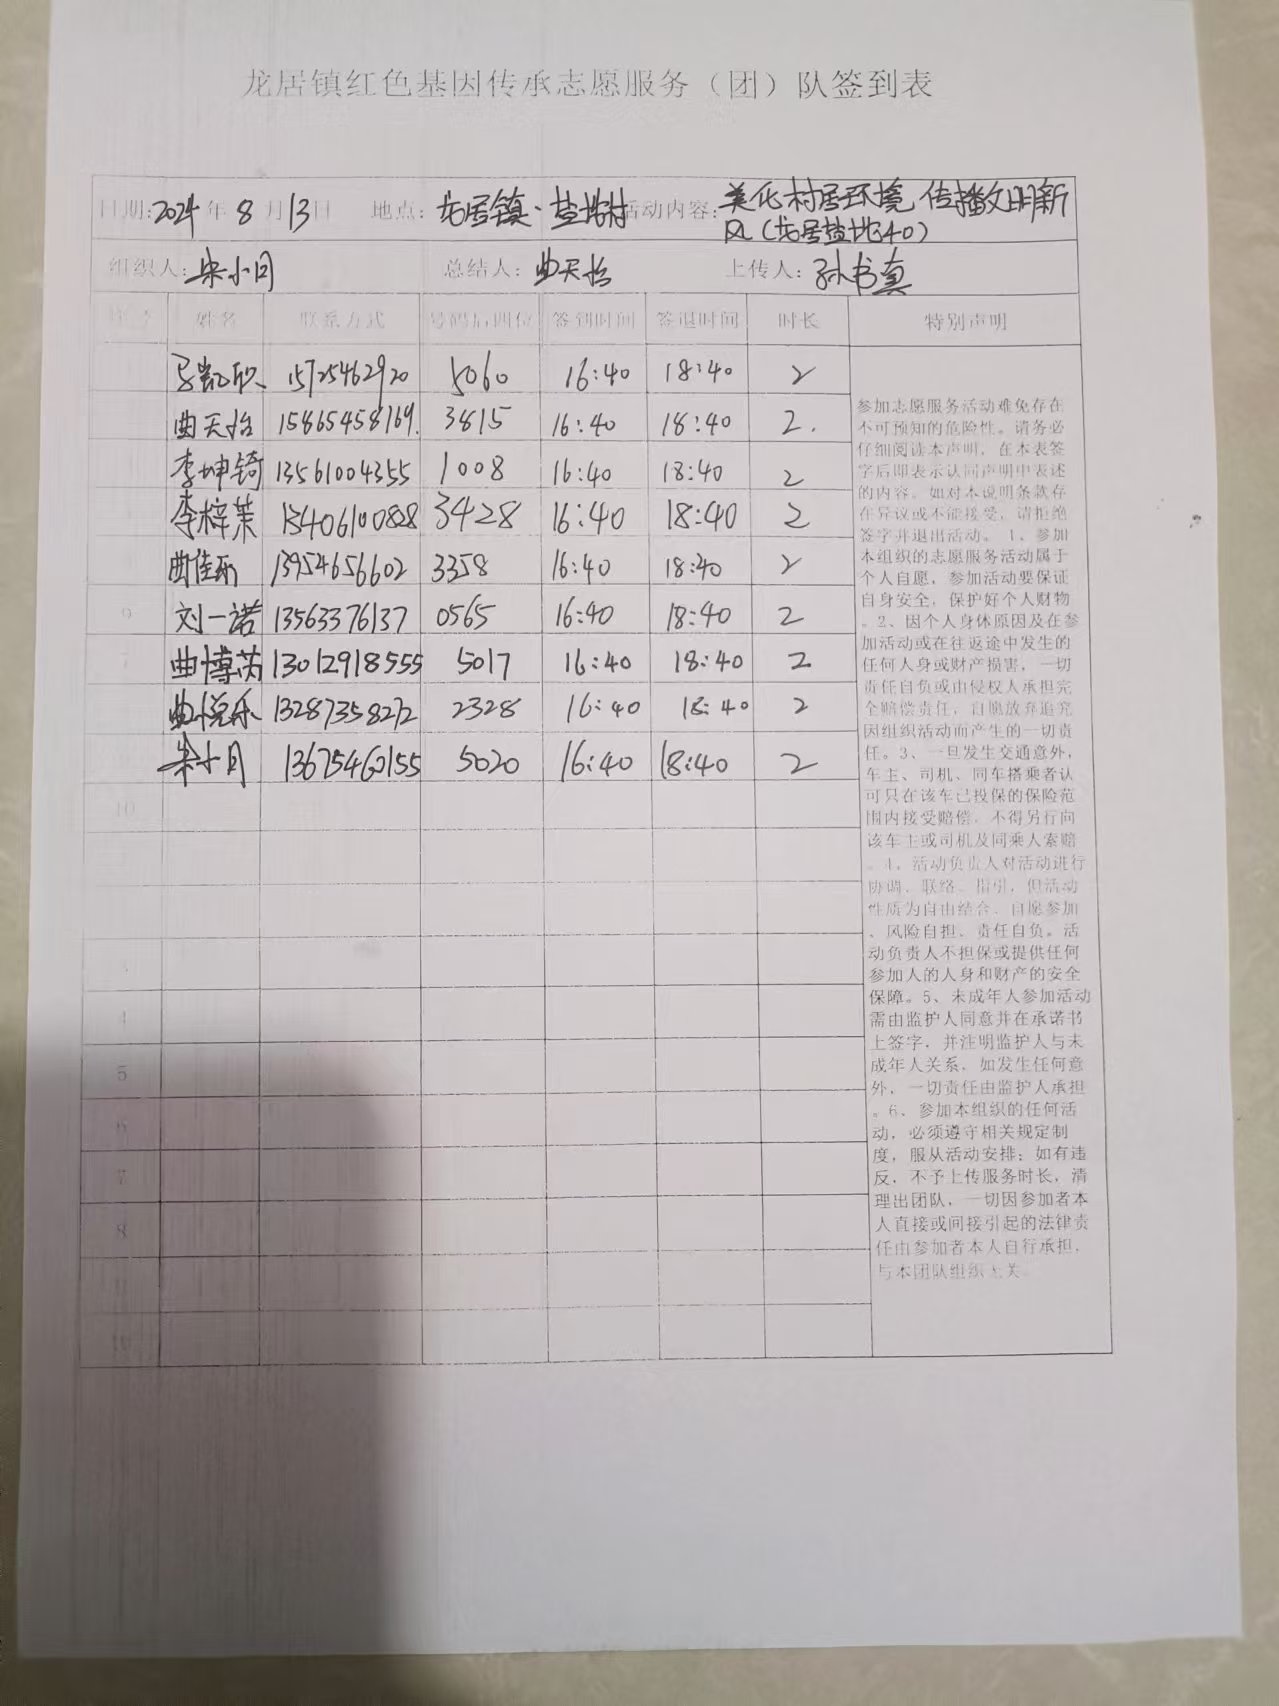 龙居镇红色基因传承志愿服务（团）队签到表
日期:2024年8月13日 地点:龙居镇·盐垛村 活动内容:美化村居环境 传播文明新
风(龙居盐垛40)
组织人:宋小月 总结人:曲天怡 上传人:孙书真
姓名 联系方式 号码后四位 签到时间 签退时间 时长 特别声明
15725462920 5060 16:40 18:40 2
曲天怡 15865458169. 3815 16:40 18:40 2.
李坤锜 13561004355 1008 16:40 18:40 2
李梓茉 13406100828 3428 16:40 18:40 2
曲佳 13954656602 3358 16:40 18:40 2
9 刘一诺 13563376137 0565 16:40 18:40 2
7 曲博芮 13012918555 5017 16:40 18:40 2
曲悦乐 13287358272 2328 16:40 18:40 2
宋小月 13675460155 5020 16:40 18:40 2
10
3
4
5
6
7
8
参加志愿服务活动难免存在
不可预知的危险性。请务必
仔细阅读本声明，在本表签
字后即表示认同声明中表述
的内容。如对本说明条款存
在异议或不能接受，请拒绝
签字并退出活动。1、参加
本组织的志愿服务活动属于
个人自愿，参加活动要保证
自身安全，保护好个人财物
。2、因个人身体原因及在参
加活动或在往返途中发生的
任何人身或财产损害，一切
责任自负或由侵权人承担完
全赔偿责任，自愿放弃追究
因组织活动而产生的一切责
任。3、一旦发生交通意外，
车主、司机、同车搭乘者认
可只在该车已投保的保险范
围内接受赔偿，不得另行向
该车主或司机及同乘人索赔
。4、活动负责人对活动进行
协调、联络、指引，但活动
性质为自由结合、自愿参加
、风险自担、责任自负。活
动负责人不担保或提供任何
参加人的人身和财产的安全
保障。5、未成年人参加活动
需由监护人同意并在承诺书
上签字，并注明监护人与未
成年人关系，如发生任何意
外，一切责任由监护人承担
。6、参加本组织的任何活
动，必须遵守相关规定制
度，服从活动安排；如有违
反，不予上传服务时长，清
理出团队，一切因参加者本
人直接或间接引起的法律责
任由参加者本人自行承担，
与本团队组织无关。